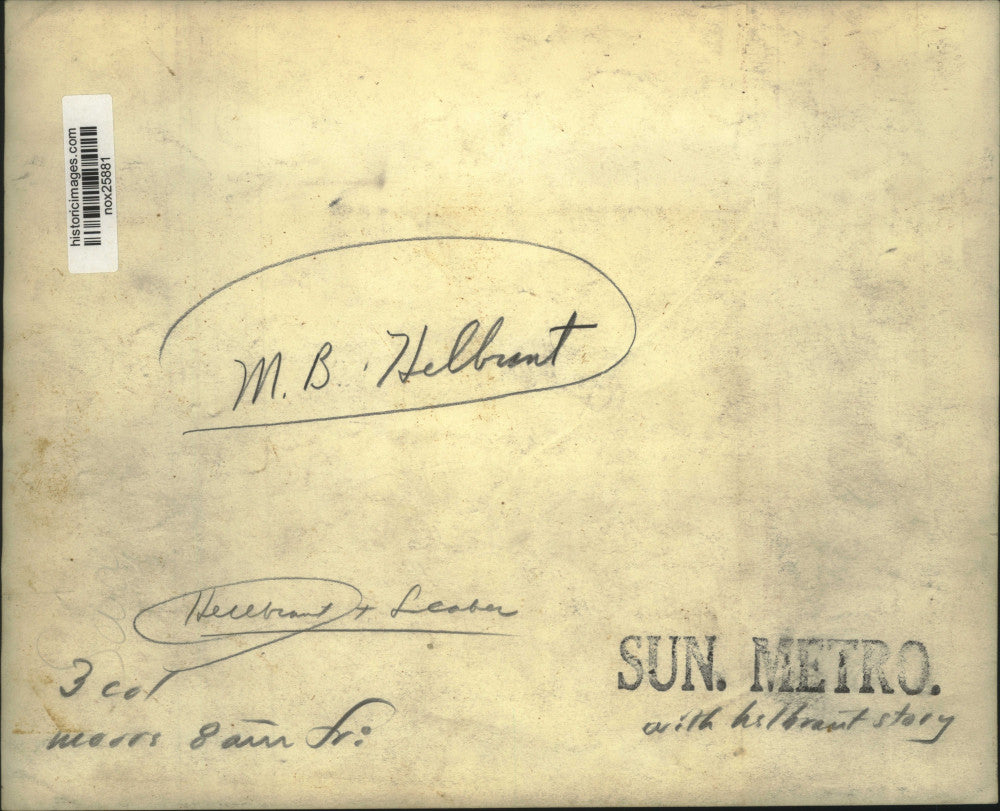 historicimages.com
nox25881
M. B. Helbrant
Hellbrant + Scaber
3 col
moors 8 am Fri
SUN. METRO.
with helbrant story